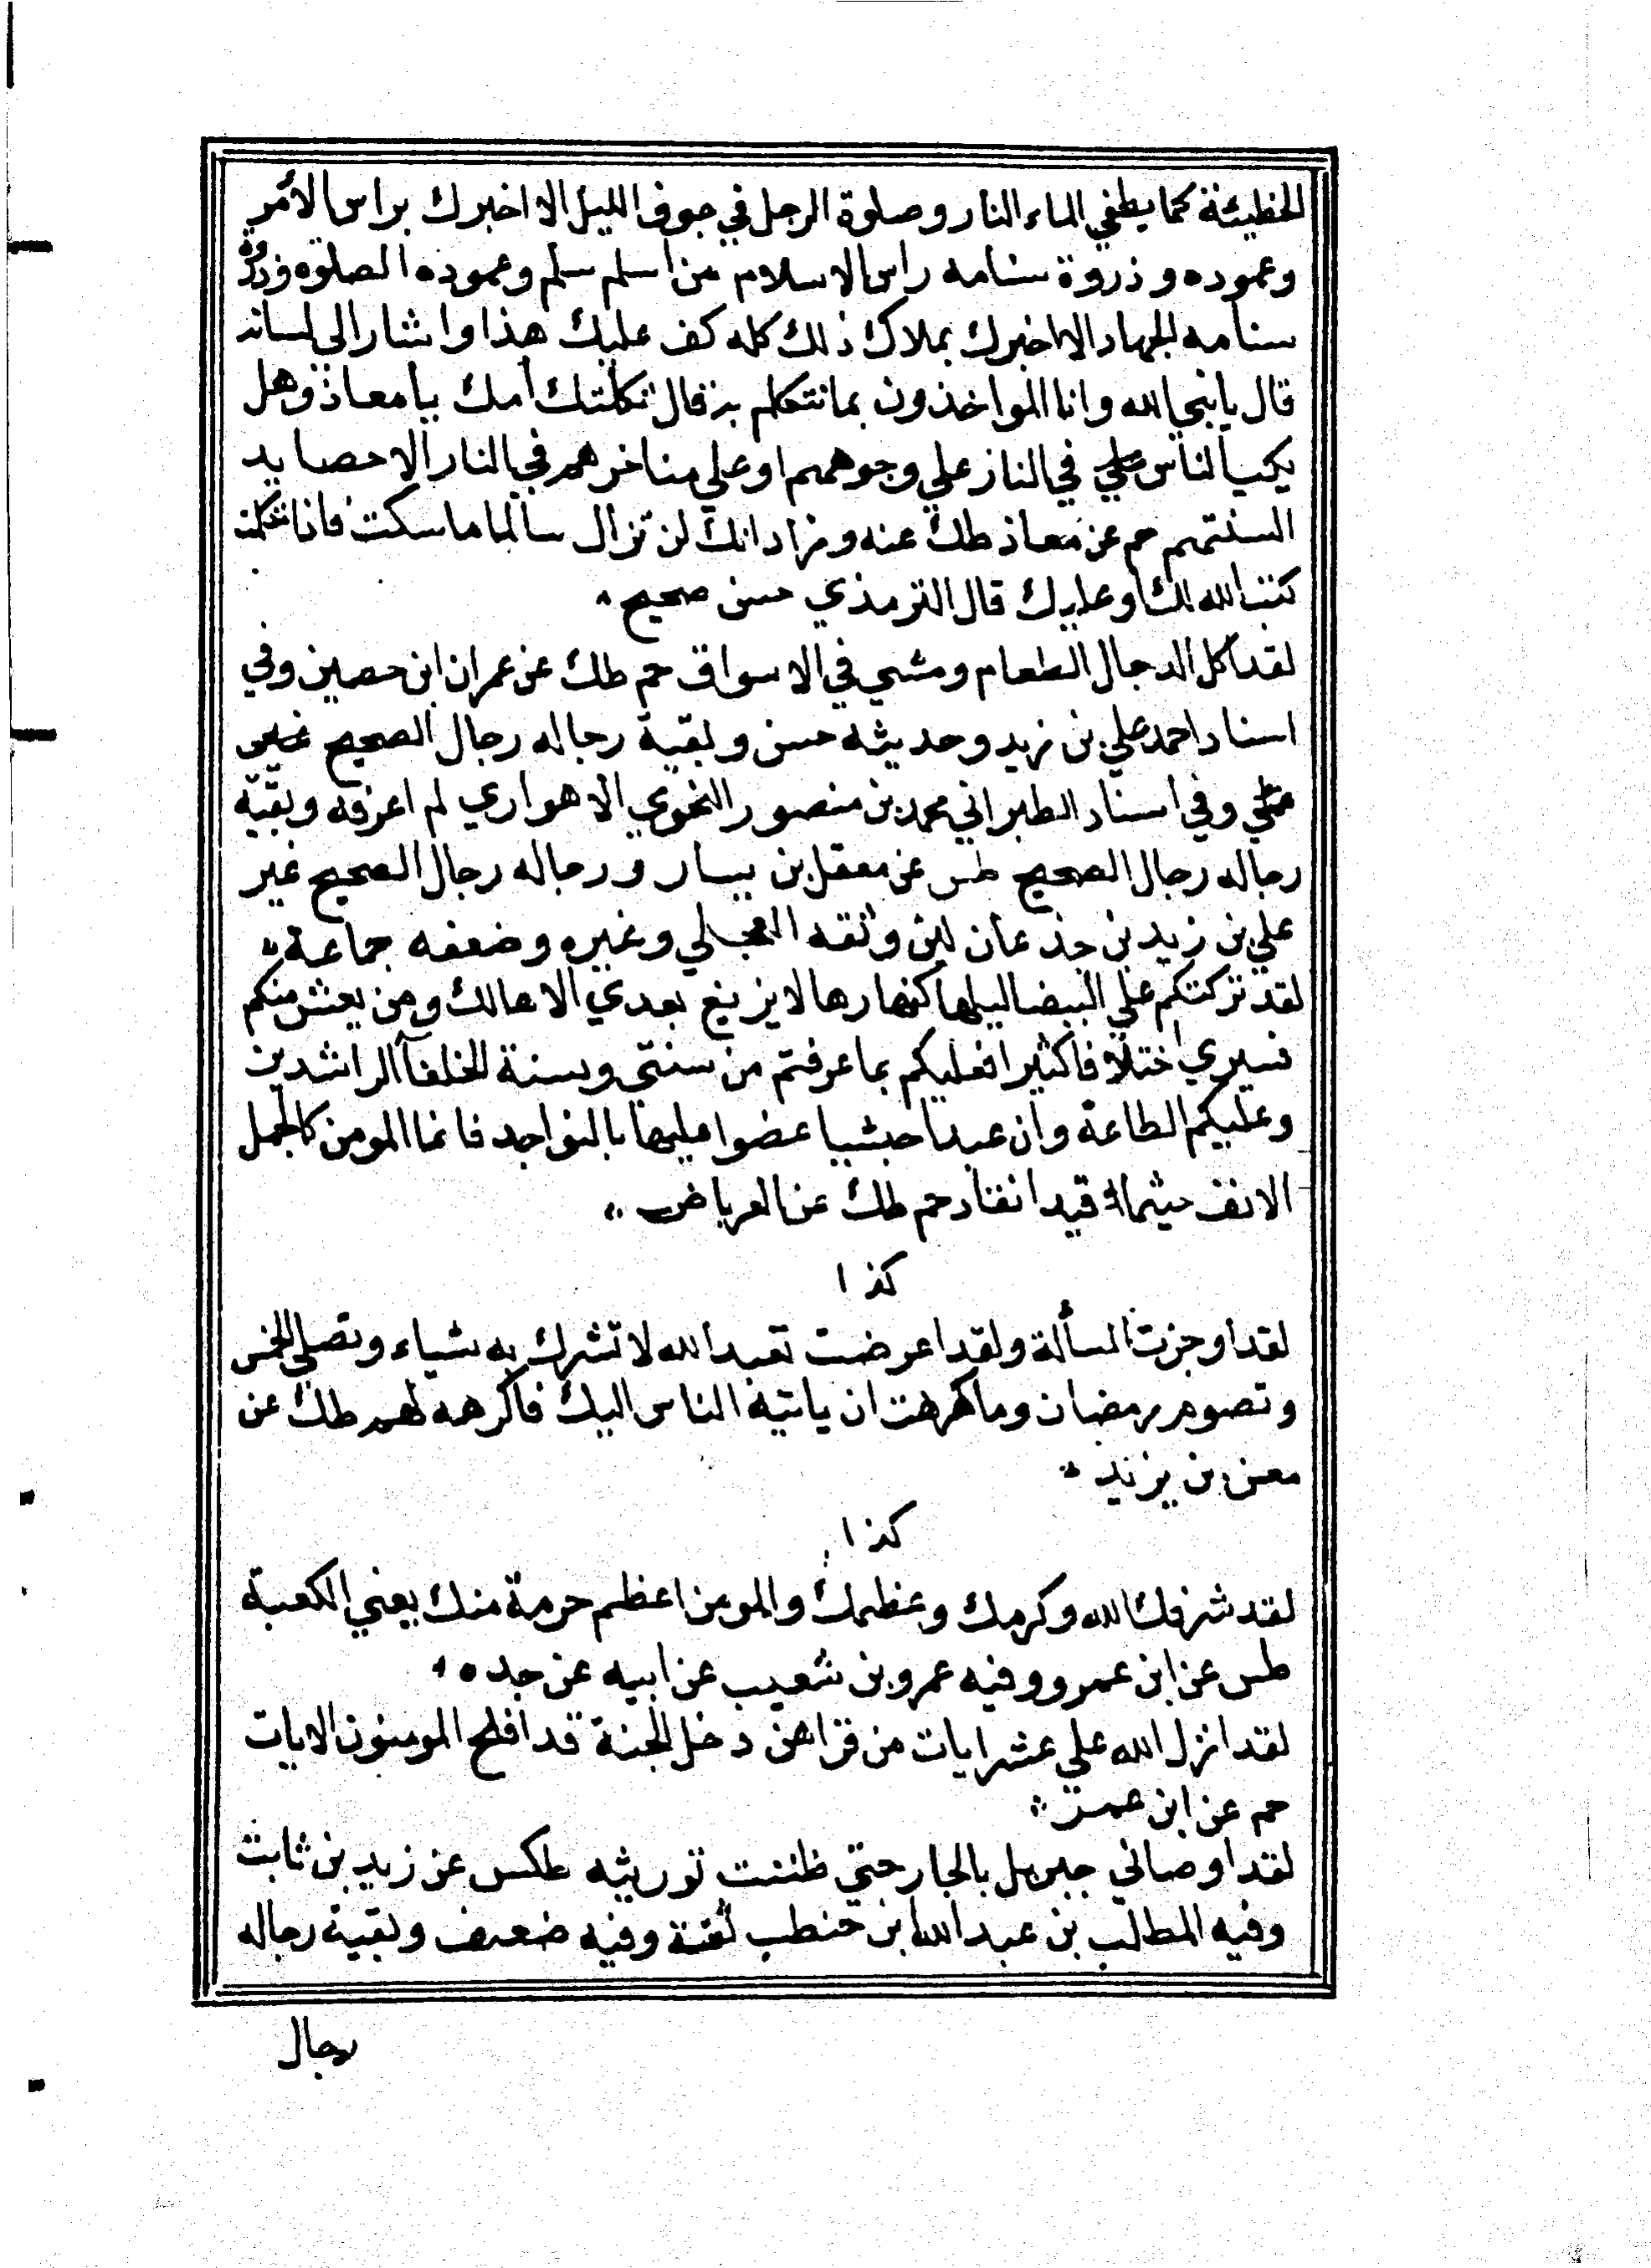 الخطيئة كما يطفي الماء النار وصلوة الرجل في جوف الليل الا اخبرك براس الامر
وعموده وذروة سنامه راس الاسلام من اسلم سلم وعموده الصلوه وذروة
سنامه الجهاد الا اخبرك بملاك ذلك كله كف عليك هذا واشار الى لسانه
قال يا نبي الله وانا المواخذون بما نتكلم به قال ثكلتك امك يا معاذ وهل
يكب الناس في النار علي وجوههم او علي مناخرهم في النار الا حصايد
السنتهم حم عن معاذ طك عنه وزاد انك لن تزال سالما ما سكت فاذا تكلمت
كتب الله لك او عليك قال الترمذي حسن صحيح
لقد اكل الدجال الطعام ومشي في الاسواق حم طك عن عمران ابن حصين وفي
اسناد احمد علي بن زيد وحديثه حسن وبقية رجاله رجال الصحيح غير
علي وفي اسناد الطبراني محمد بن منصور النحوي الاهوازي لم اعرفه وبقية
رجاله رجال الصحيح طس عن معقل بن يسار ورجاله رجال الصحيح غير
علي بن زيد بن جذعان لين وثقه العجلي وغيره وضعفه جماعة
لقد تركتكم علي البيضا ليلها كنهارها لا يزيغ بعدي الا هالك ومن يعش منكم
فسيري اختلافا كثيرا فعليكم بما عرفتم من سنتي وسنة الخلفآ الراشدين
وعليكم الطاعة وان عبدا حبشيا عضوا عليها بالنواجد فانما المومن كالجمل
الانف حيثما قيد انقاد حم طك عن العرباض
كذا
لقد اوجزت المسألة ولقد اعرضت تعبد الله لا تشرك به شياء وتصلي الخمس
وتصوم رمضان وما كرهت ان ياتيه الناس اليك فاكرهه لهم طك عن
معن بن يزيد
كذا
لقد شرفك الله وكرمك وعظمك والمومن اعظم حرمة منك يعني الكعبة
طس عن ابن عمرو وفيه عمرو بن شعيب عن ابيه عن جده
لقد انزل الله علي عشر ايات من قراهن دخل الجنة قد افلح المومنون الايات
حم عن ابن عمر
لقد اوصاني جبريل بالجار حتي ظننت توريثه طكس عن زيد بن ثابت
وفيه المطلب بن عبد الله ابن حنطب ثقة وفيه ضعف وبقية رجاله
رجال